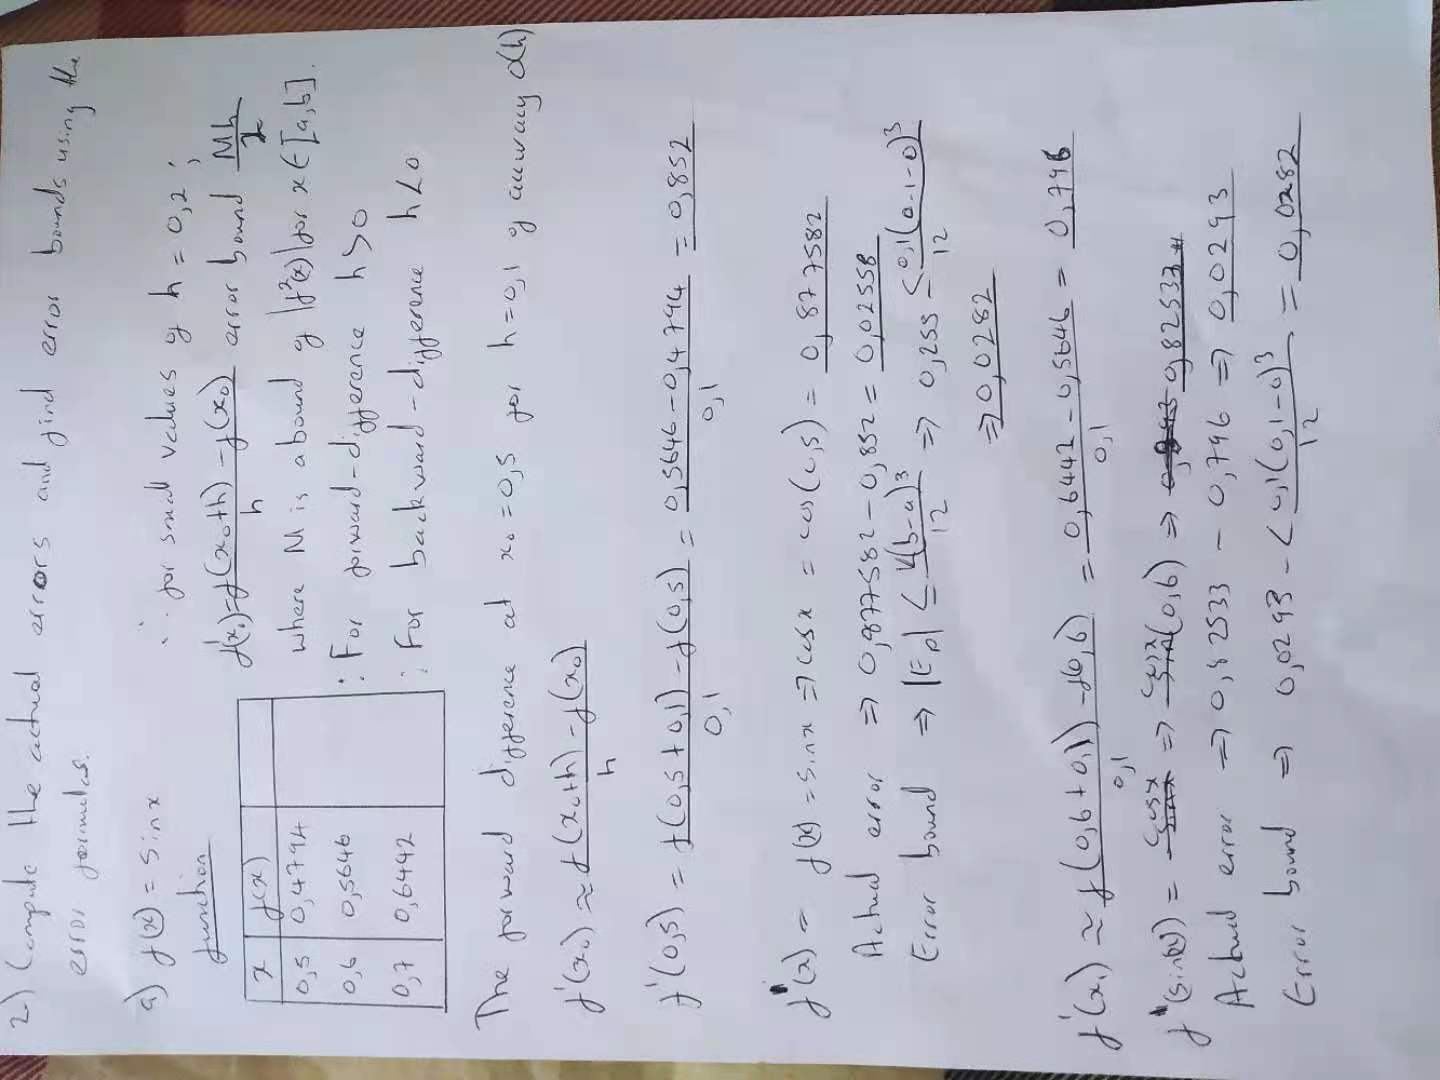 2.) Compute the actual errors and find error bounds using the
error formulas.
a) f(x) = sinx
function
x f(x)
0,5 0,4794
0,6 0,5646
0,7 0,6442
∴ for small values of h = 0,2 ;
f'(x₀)=f(x₀+h) - f(x₀) / h error bound Mh/2
where M is a bound of |f²(x)| for x∈[a,b].
: For forward-difference h>0
: For backward-difference h<0
The forward difference at x₀ = 0,5 for h=0,1 of accuracy O(h)
f'(x₀) ≈ f(x₀+h) - f(x₀) / h
f'(0,5) = f(0,5+0,1) - f(0,5) / 0,1 = 0,5646 - 0,4794 / 0,1 = 0,852
f"(x) = f(x) = sinx ⇒ cosx = cos(0,5) = 0,877582
Actual error ⇒ 0,877582 - 0,852 = 0,02558
Error bound ⇒ |E| ≤ (b-a)³ / 12 ⇒ 0,255 ≤ 0,1(0.1-0)³ / 12
⇒ 0,0282
f'(x₁) ≈ f(0,6+0,1) - f(0,6) / 0,1 = 0,6442 - 0,5646 / 0,1 = 0,796
f"(sin(x)) = cosx ⇒ (0,6) ⇒ 0,82533
Actual error ⇒ 0,82533 - 0,796 ⇒ 0,0293
Error bound ⇒ 0,0293 - < 0,1(0,1-0)³ / 12 = 0,0282